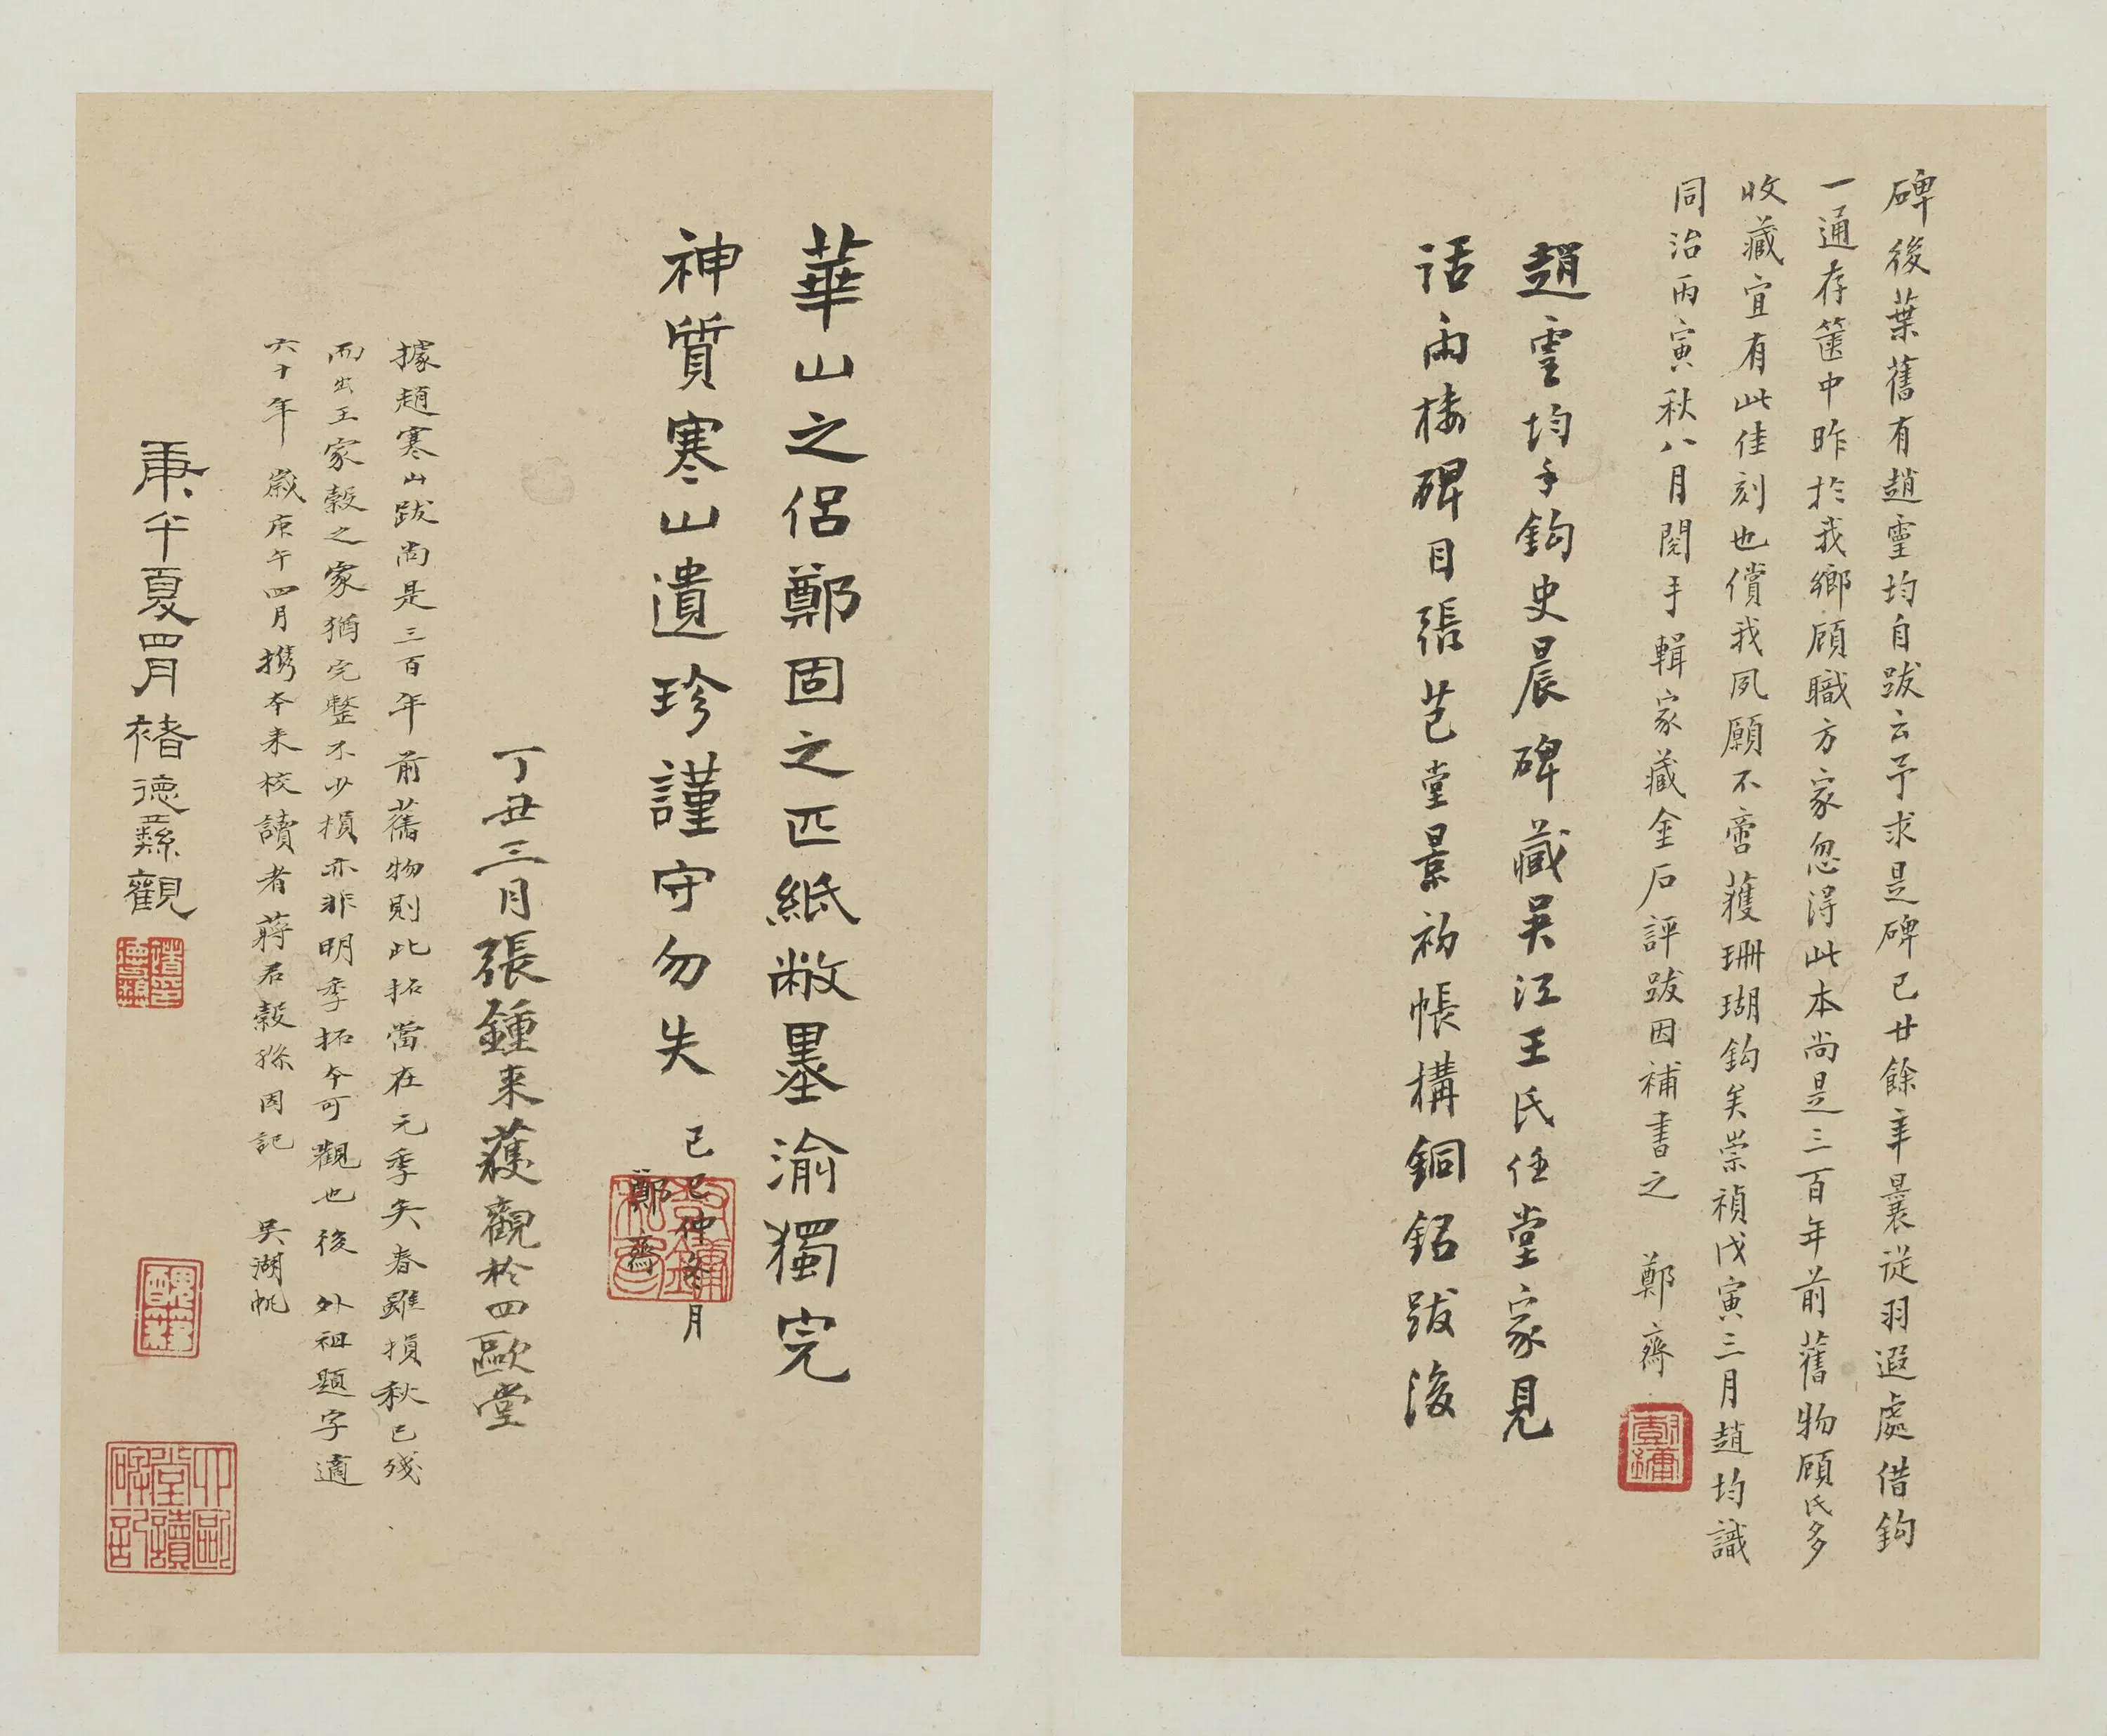 碑後葉舊有趙靈均自跋云予求是碑已廿餘年曩從羽遐處借鈎
一通存篋中昨於我鄉顧職方家忽得此本尚是三百年前舊物顧氏多
收藏宜有此佳刻也償我夙願不啻獲珊瑚鈎矣崇禎戊寅三月趙均識
同治丙寅秋八月閱手輯家藏金石評跋因補書之 鄭齋
趙靈均手鈎史晨碑藏吳江王氏任堂家見
話雨樓碑目張芑堂景初帳構銅銘跋後
華山之侶鄭固之匹紙敝墨渝獨完
神質寒山遺珍謹守勿失 己巳仲冬月
鄭齋
丁丑三月張鍾來獲觀於四歐堂
據趙寒山跋尚是三百年前舊物則此拓當在元季矣春雖損秋已殘
而出王家穀之家猶完整不少損亦非明季拓本可觀也後 外祖題字適
六十年 歲庚午四月攜本來校讀者蔣君穀孫因記 吳湖帆
庚午夏四月褚德彝觀
四歐堂讀碑記